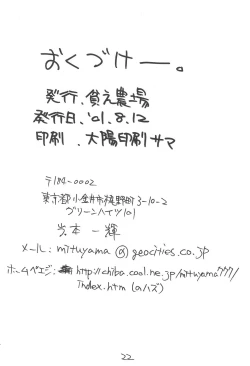 おくづけー。
発行.貧え農場
発行日.'01.8.12
印刷.太陽印刷サマ
〒184-0002
東京都小金井市梶野町3-10-2
グリーンハイツ101
一輝
メール: mituyama@geocities.co.jp
ホームペエジ: http://chiba.cool.ne.jp/mituyama777/
index.htm (のハズ)
22